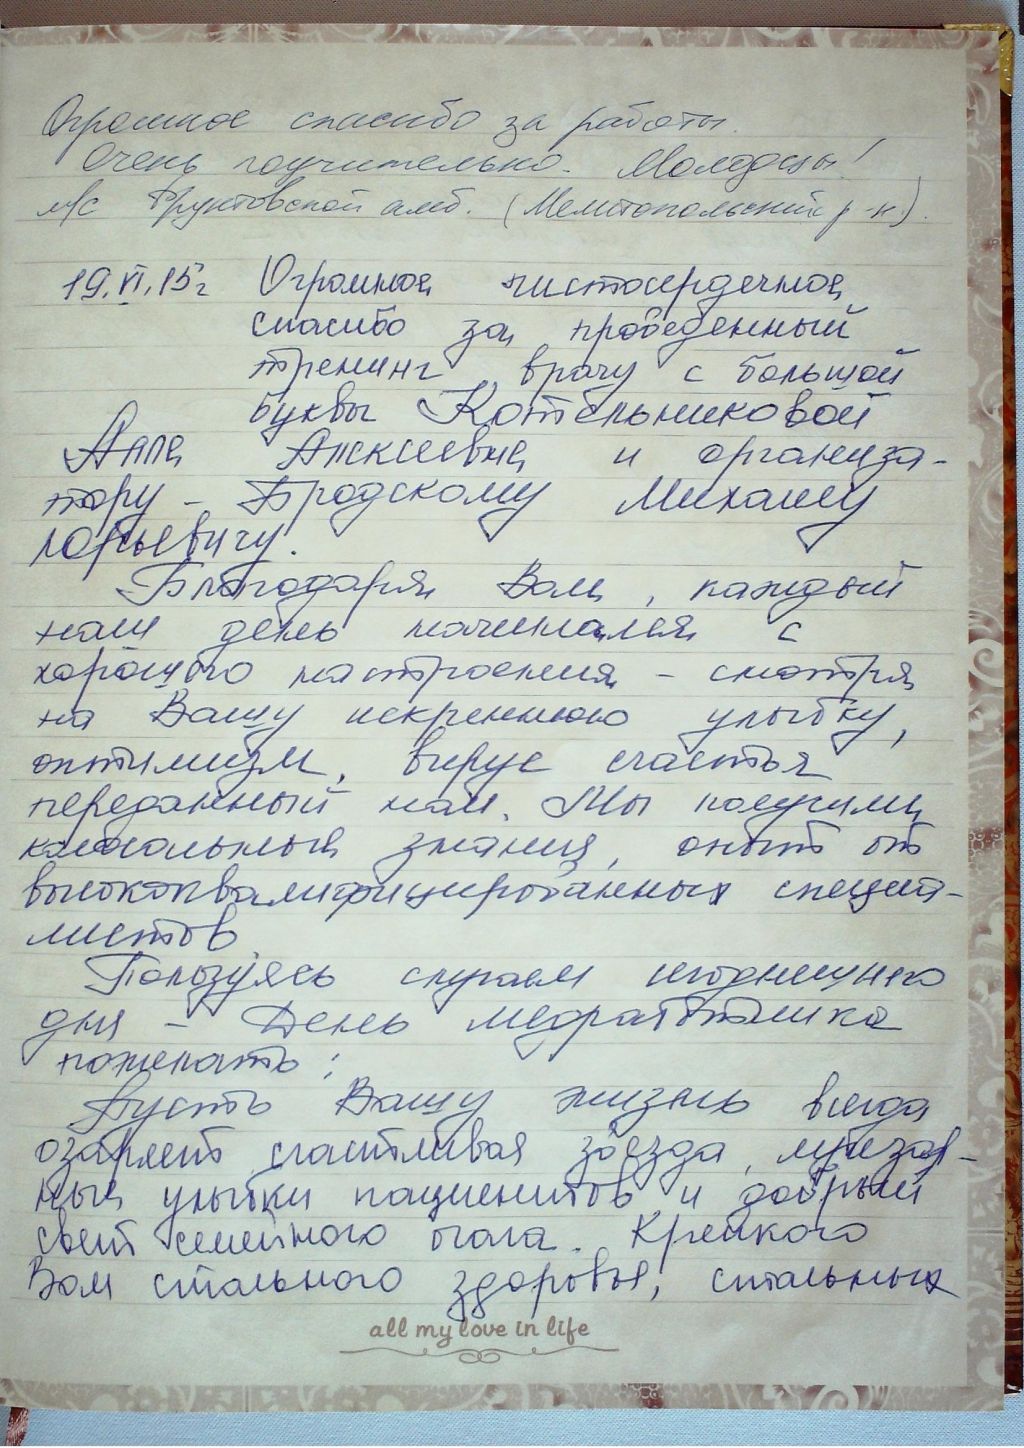 Огромное спасибо за работы.
Очень поучительно. Молодцы!
м/с Фруктовской амб. (Мелитопольский р-н).
19.VI.15г Огромное, чистосердечное,
спасибо за, проведенный
тренинг врачу с большой
буквы Котельниковой
Алле Алексеевне и организа-
тору – Бродскому Михаилу
Юрьевичу.
Благодаря Вам, каждый
наш день начинался с
хорошего настроения – смотря
на Вашу искреннюю улыбку,
оптимизм, вирус счастья
переданный нам. Мы получили
знания, опыт от
высококвалифицированных специа-
листов
Пользуясь случаем сегодняшнего
дня – День медработника
пожелать:
Пусть Вашу жизнь всегда
озаряет счастливая звезда,
улыбки пациентов и добрый
свет семейного очага. Крепкого
Вам стального здоровья, стальных
all my love in life